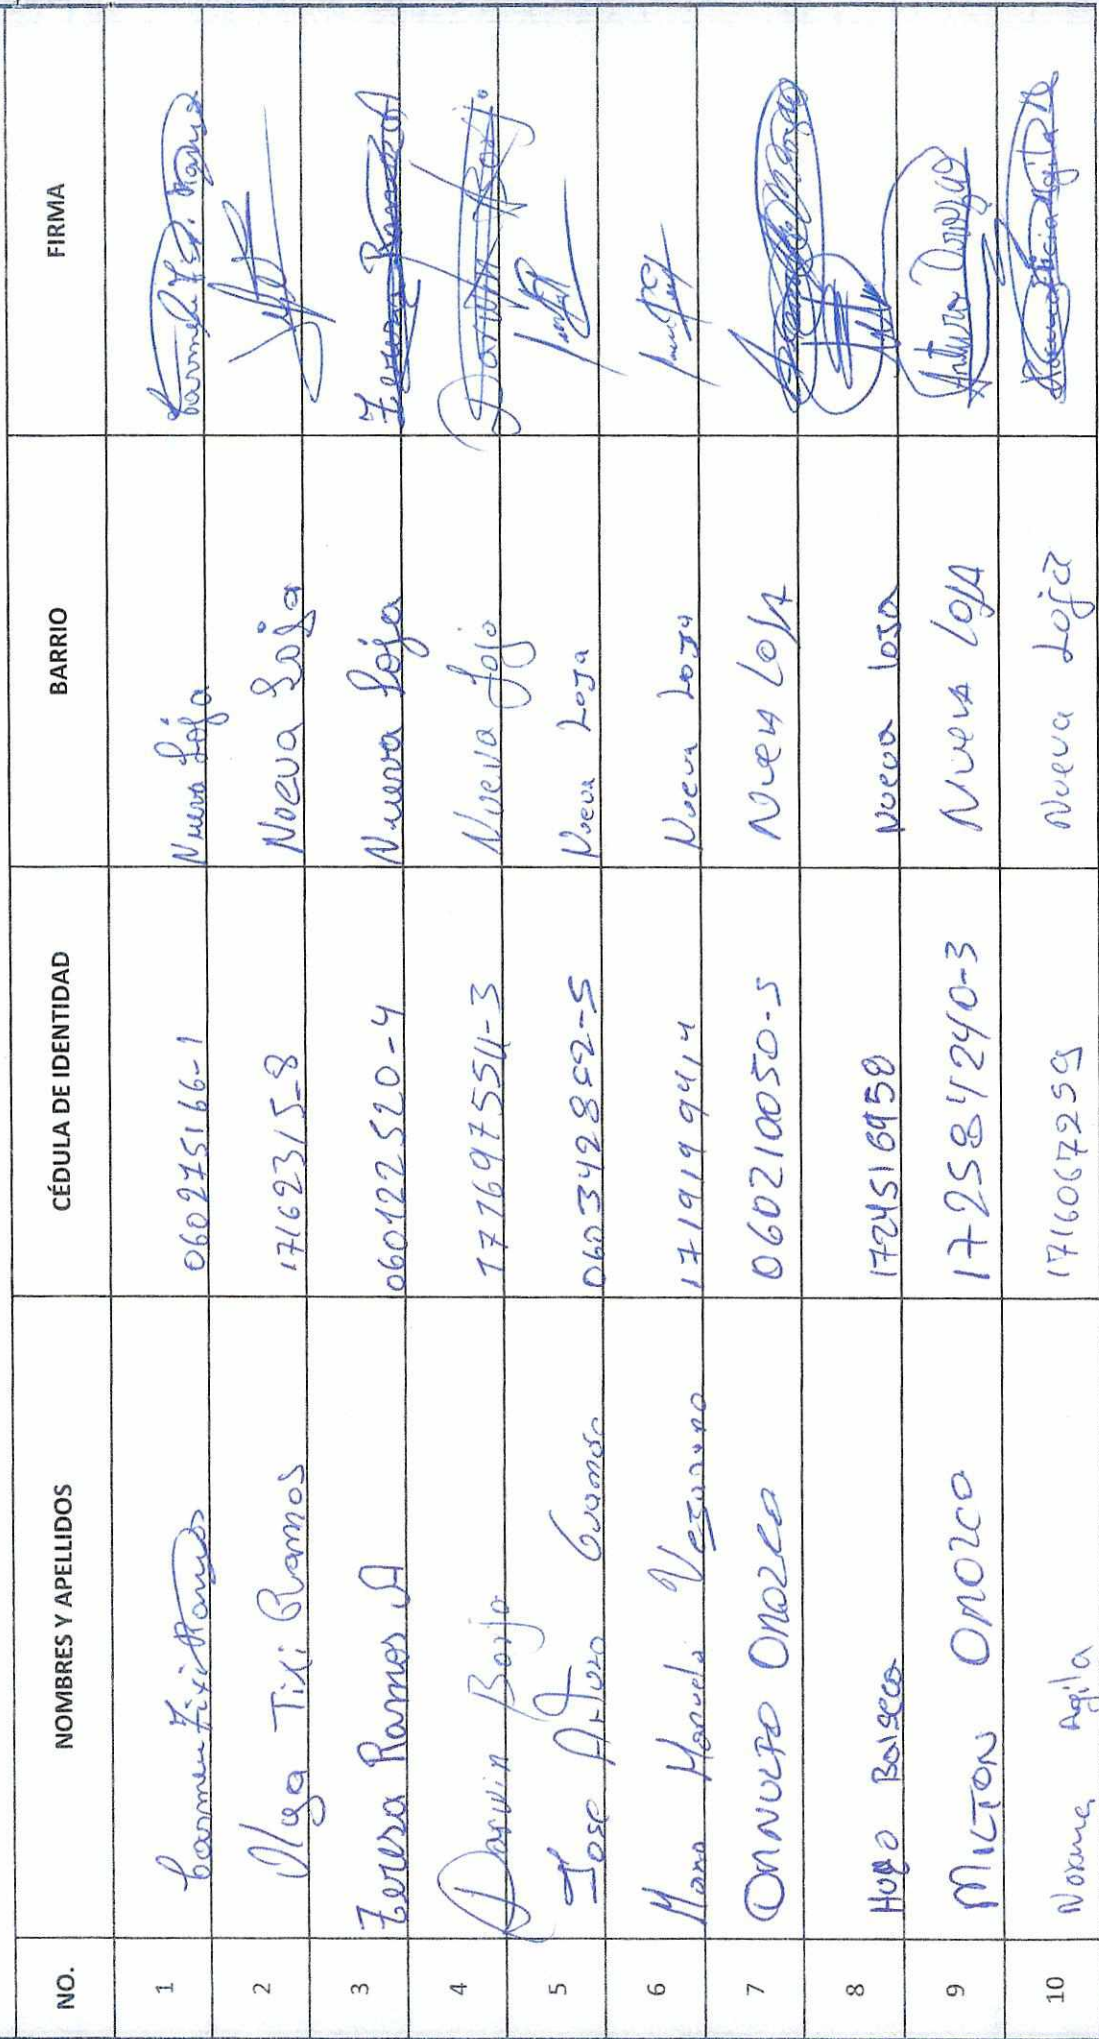 NO. NOMBRES Y APELLIDOS CÉDULA DE IDENTIDAD BARRIO FIRMA
1 Carmen Tixi Ramos 060275166-1 Nueva Loja
2 Olga Tixi Ramos 171623115-8 Nueva Loja
3 Teresa Ramos A 060122520-4 Nueva Loja Teresa Ramos A
4 Darwin Borja 171697554-3 Nueva Loja Darwin Borja.
5 Jose Arturo Guaman 060342852-5 Nueva Loja
6 Maria Manuela 1719199414 Nueva Loja
7 ORNULFO OROZCO 060210050-5 Nueva LOJA
8 Hugo Balseca 1724516958 Nueva Loja
9 MILTON OROZCO 172584240-3 Nueva LOJA
10 Norma Agila 1716067259 Nueva Loja